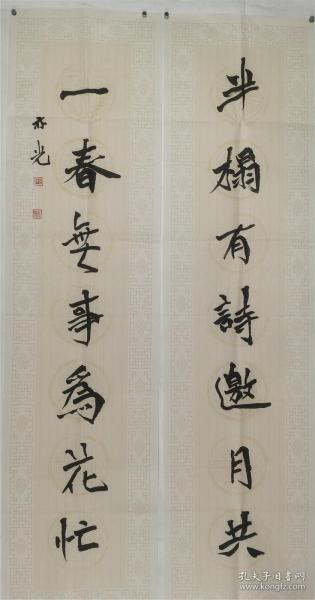 半榻有詩邀月共
一春無事為花忙
亦光
孔夫子旧书网
www.kongfz.com